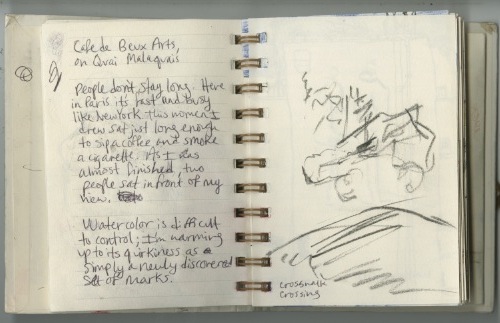 Cafe de Beux Arts,
on Quai Malaquais
People don't stay long. Here
in Paris its fast and busy
like New York. This women I
drew sat just long enough
to sip a coffee and smoke
a cigarette. As I was
almost finished, two
people sat in front of my
view.
Watercolor is difficult
to control; I'm warming
up to its quirkiness as
simply a newly discovered
set of marks.
Crossing